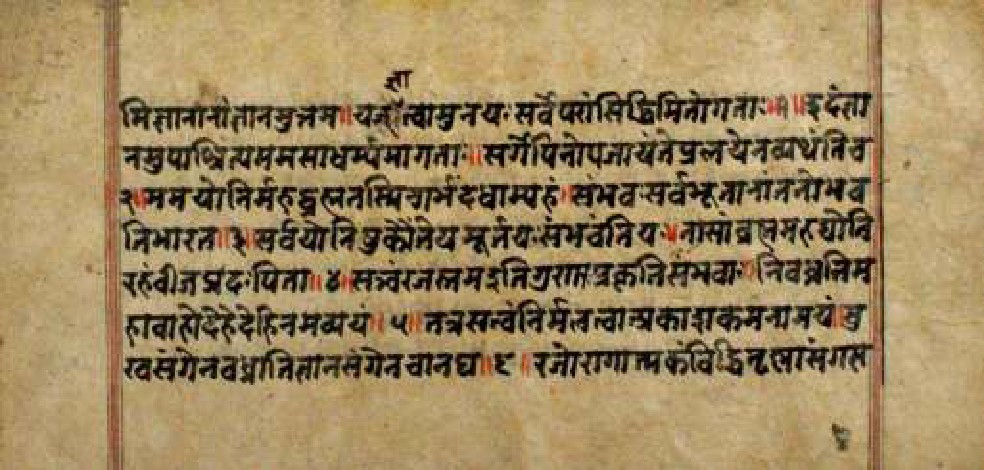 ज्ञा
मिज्ञानानांज्ञानमुत्तमं॥यज्ज्ञात्वामुनयःसर्वेपरांसिद्धिमितोगताः॥१॥इदंज्ञा
नमुपाश्रित्यममसाधर्म्यमागताः॥सर्गेपिनोपजायंतेप्रलयेनव्यथंतिच
२॥ममयोनिर्महद्ब्रह्मतस्मिन्गर्भंदधाम्यहं॥संभवःसर्वभूतानांततोभव
तिभारत॥३॥सर्वयोनिषुकौंतेयमूर्तयःसंभवंतियः॥तासांब्रह्ममहद्योनि
रहंबीजप्रदःपिता॥४॥सत्त्वंरजस्तमइतिगुणाःप्रकृतिसंभवाः॥निबध्नंतिम
हाबाहोदेहेदेहिनमव्ययं॥५॥तत्रसत्त्वंनिर्मलत्वात्प्रकाशकमनामयं॥सु
खसंगेनबध्नातिज्ञानसंगेनचानघ॥६॥रजोरागात्मकंविद्धितृष्णासंगस